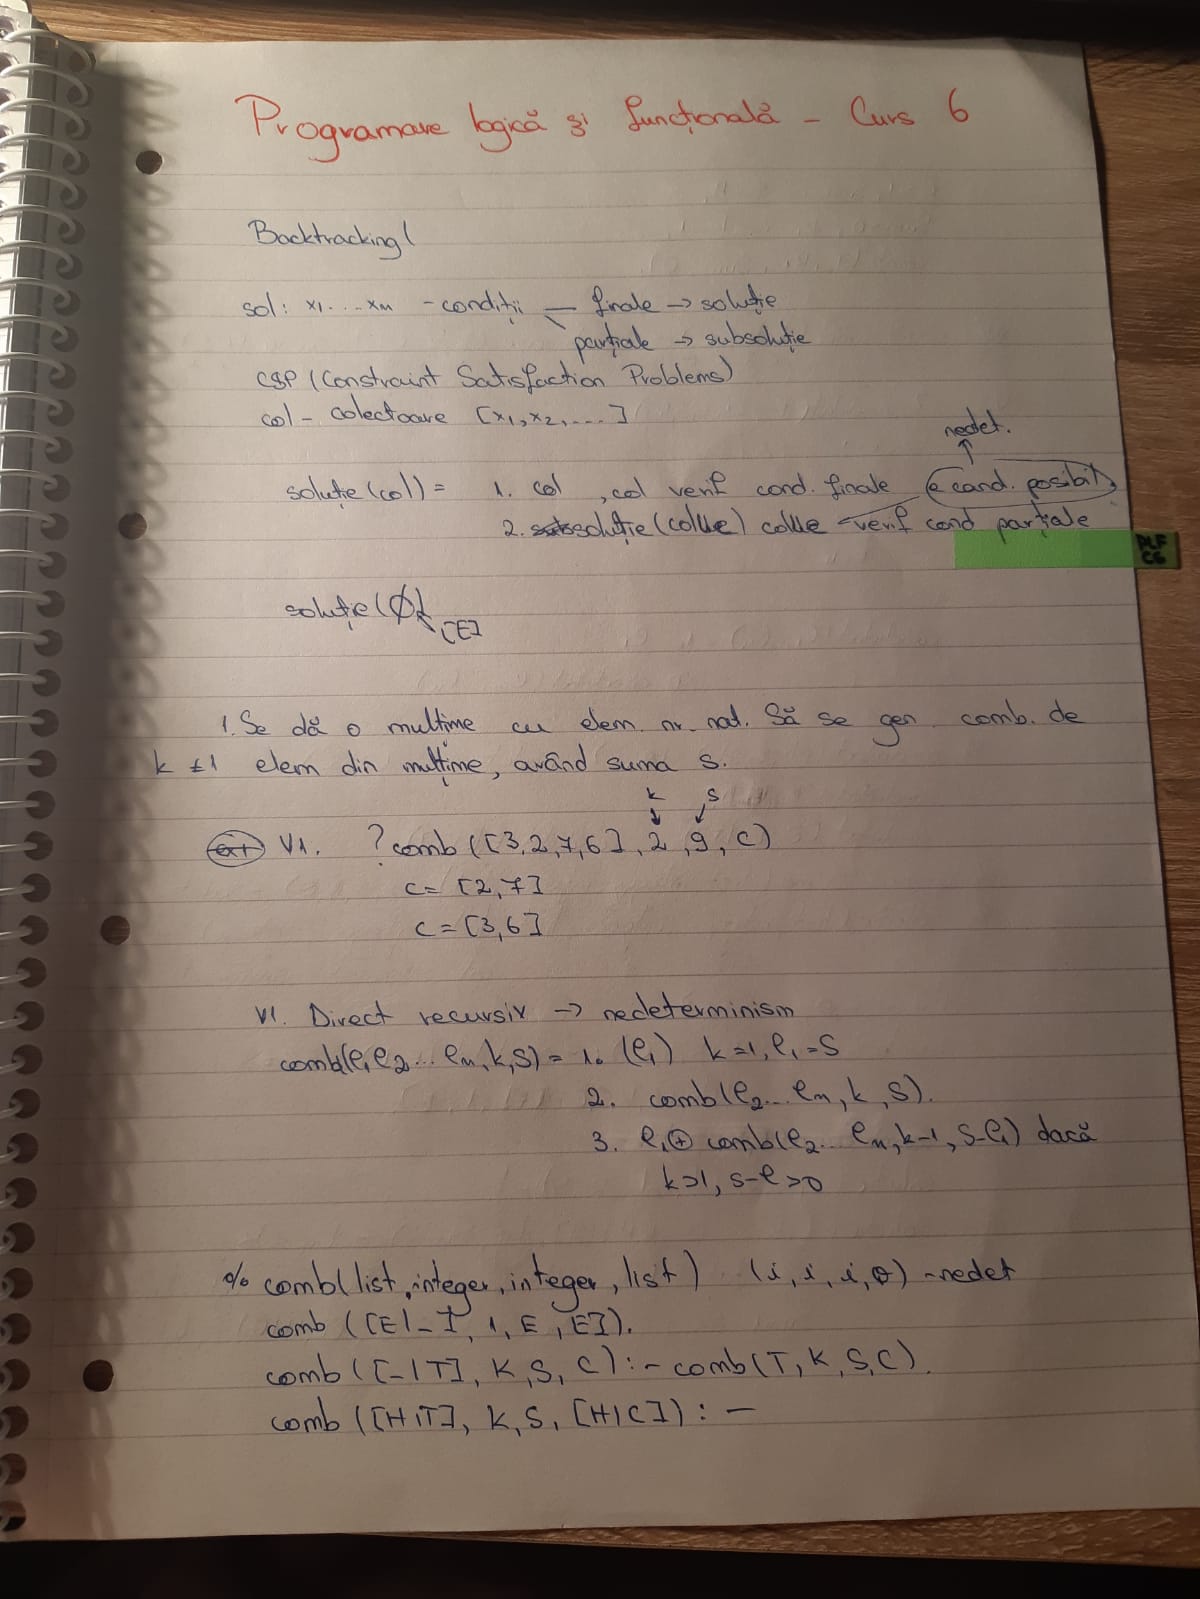 Programare logică și funcțională - Curs 6
Backtracking
sol: x1...xn - condiții - finale → soluție
parțiale → subsoluție
CSP (Constraint Satisfaction Problems)
col - colectoare [x1, x2, ...]
nedet.
soluție (col) = 1. col, col verif cond. finale e cand. posibil
2. soluție (col ∪ e) col ∪ e verif cond parțiale
PLF C6
soluție (Ø
[E]
1. Se dă o mulțime cu elem nr. nat. Să se gen comb. de
k ≥1 elem din mulțime, având suma S.
k S
V1. ? comb ([3,2,7,6], 2, 9, C)
C = [2,7]
C = [3,6]
V1. Direct recursiv → nedeterminism
comb(l1 l2 ... ln, k, S) = 1. (l1) k=1, l1=S
2. comb(l2...ln, k, S).
3. l1 ⊕ comb(l2...ln, k-1, S-l1) dacă
k>1, s-l>0
% comb(list, integer, integer, list) (i, i, i, o) - nedet
comb ([E|_], 1, E, E]).
comb ([_|T], K, S, C) :- comb(T, K, S, C).
comb ([H|T], K, S, [H|C]) :-